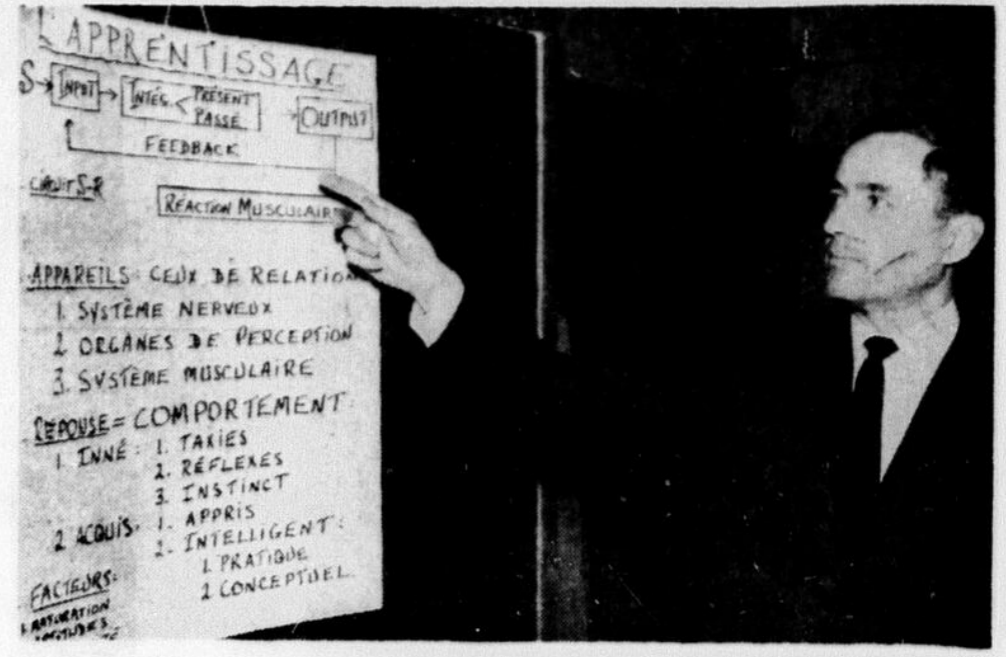 L'APPRENTISSAGE
S → INPUT → INTÉG. < PRÉSENT PASSÉ → OUTPUT
FEEDBACK
CIRCUIT S-R
RÉACTION MUSCULAIRE
APPAREILS: CEUX DE RELATION
1. SYSTÈME NERVEUX
2 ORGANES DE PERCEPTION
3. SYSTÈME MUSCULAIRE
RÉPONSE = COMPORTEMENT:
1. INNÉ: 1. TAXIES
2. RÉFLEXES
3. INSTINCT
2 ACQUIS. 1. APPRIS
2. INTELLIGENT:
1. PRATIQUE
2 CONCEPTUEL
FACTEURS:
1. MATURATION